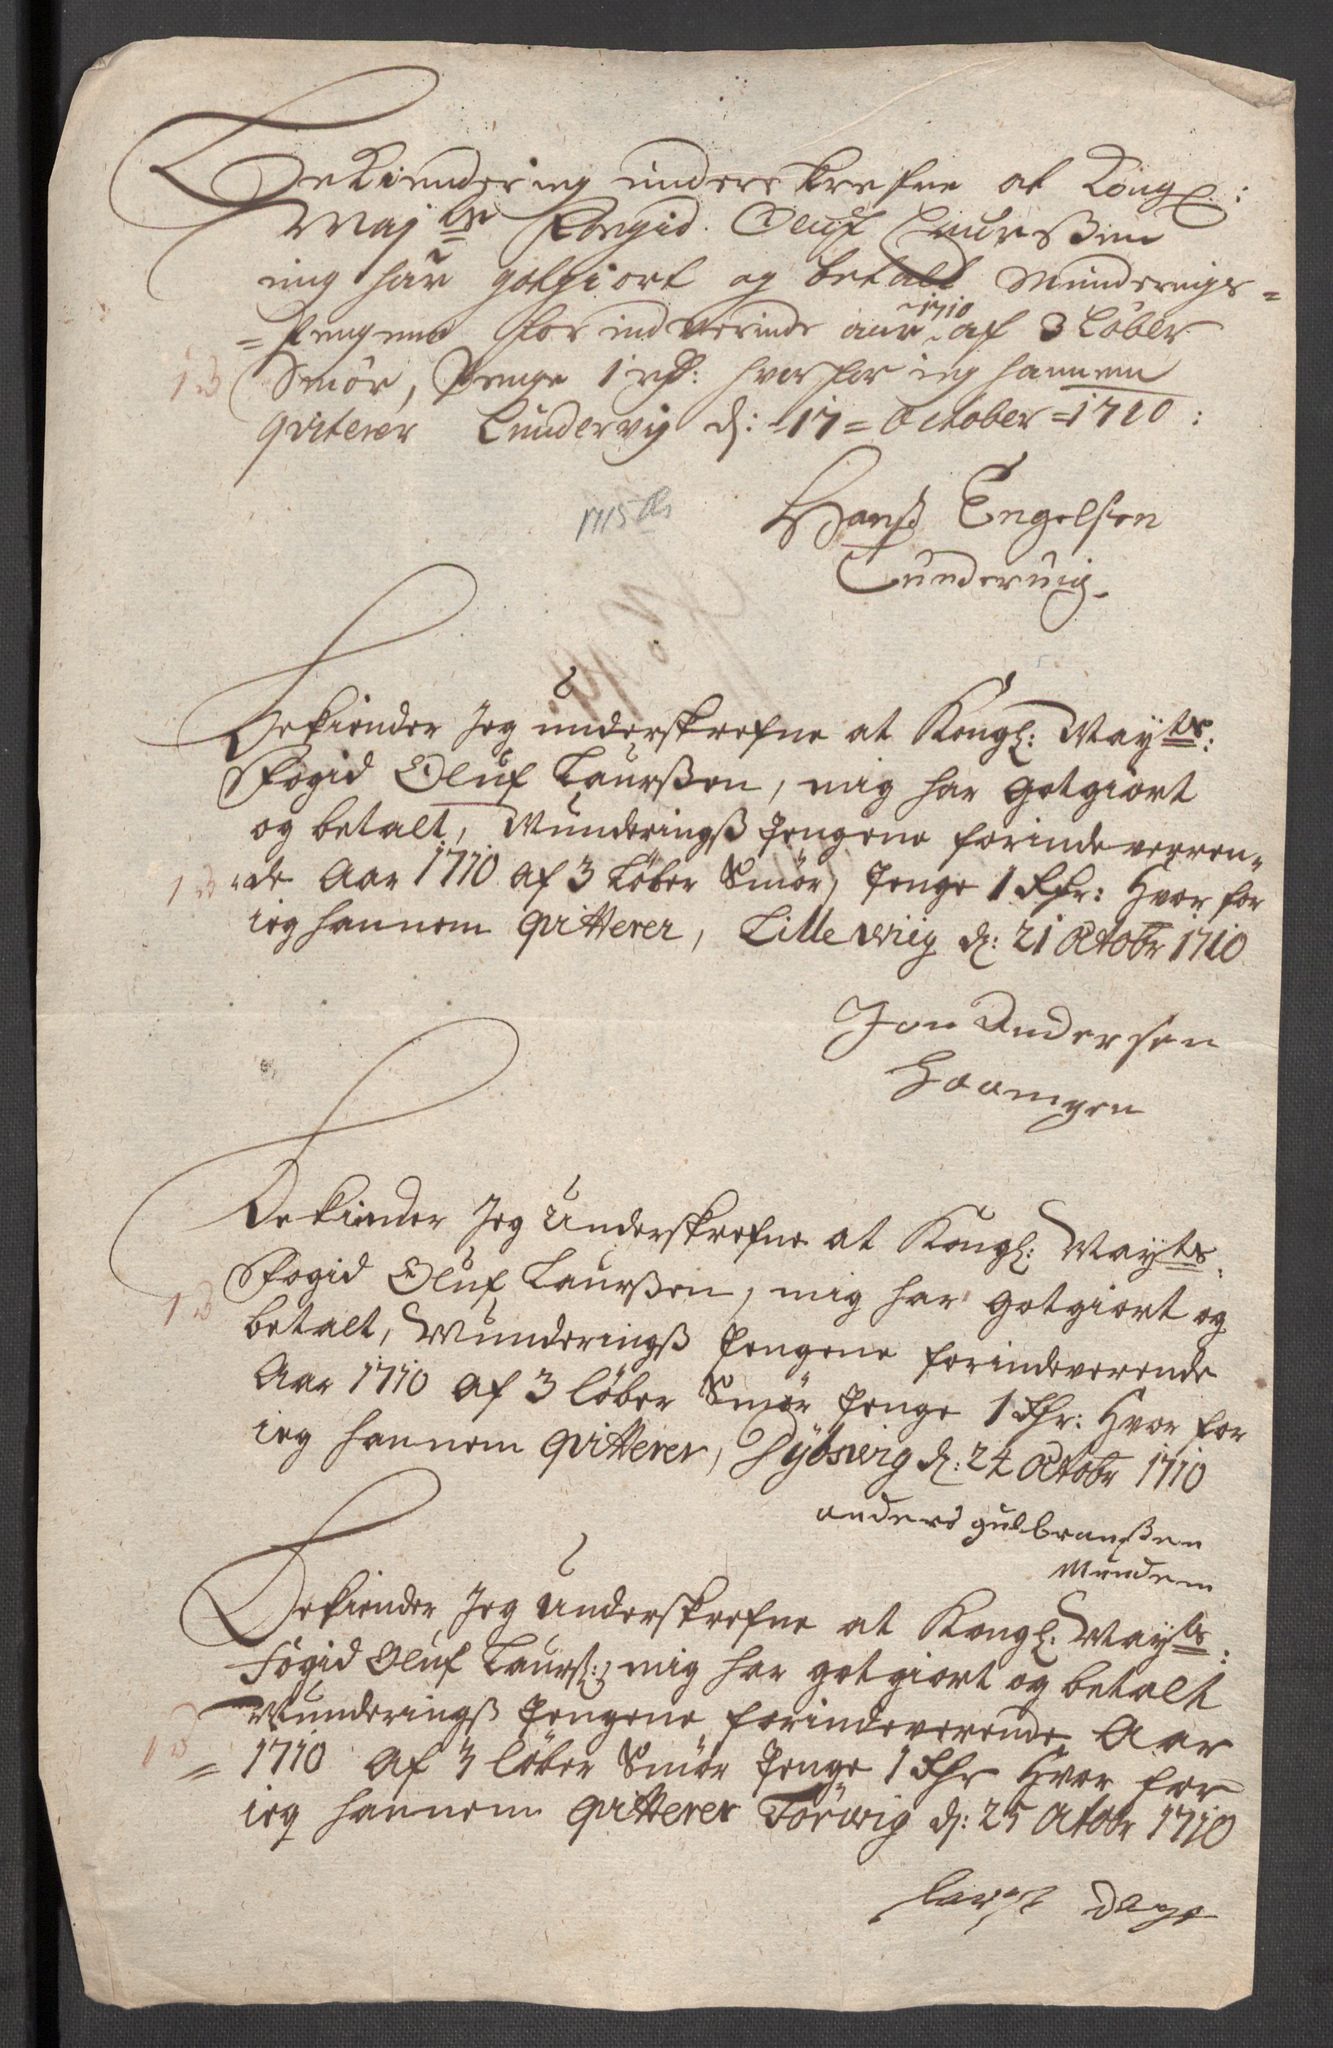 Bekiender ieg underskrefne at Kongl:
Maj^ts Fougid. Oluf Laurßen
mig har gotgiort og betalt Munderings=
=Pengene for indverinde aar 1710 af 3 Løber
1 D Smör, Penge 1 rd: hvorfor ieg hannem
qviterer Lundervig d: 17 = October = 1710:
1715
Hanß Engelsen
Lundervig.
Bekiender Jeg underskrefne at Kongl: May^ts:
Fogid Oluf Laurßen, mig har gotgiort
og betalt, Munderingß Pengene forindeverren-
1 D de Aar 1710 af 3 Løber Smør, Penge 1 Rdr: Hvor for
ieg hannem qvitterer, Lille wiig d: 21 Octobr 1710
Jon Andersen
Bekiender Jeg Underskrefne at Kongl: May^ts:
1 D Fogid Oluf Laurßen, mig har gotgiort og
betalt, Munderingß Pengene forindeverende
Aar 1710 af 3 löber Smør Penge 1 Rdr: Hvor for
ieg hannem qvitterer, Dybsvig d: 24 Octobr 1710
anders gulbranßen
Mundem
Bekiender Jeg Underskrefne at Kongl. May^ts:
Fogid Oluf Laurß:, mig har gotgiort og betalt
Munderingß Pengene forindeverende Aar
1 D = 1710 Af 3 löber Smör Penge 1 Rdr Hvor for
ieg hannem qvitterer Torwig d: 25 Octobr 1710
larß Dage